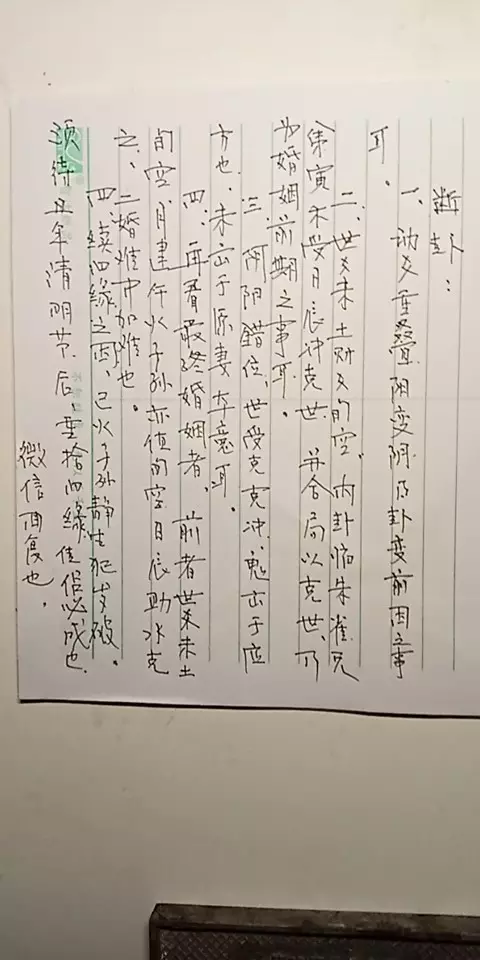 断卦：
一、动爻重叠阴变阴乃卦变前因之事
耳。
二、世爻未土财爻旬空、内卦临朱雀兄
弟寅木受月辰冲克世并合局以克世、乃
为婚姻前期之事耳。
三、阴阳错位、世受克克冲、鬼出于应
方也、未出于原妻本意耳。
四、再看最终婚姻者、前者世爻未土
旬空月建午火子孙亦值旬空日辰助水克
之、二婚难中加难也。
四、续四缘之酉、己火子孙静生犯岁破。
须待丑年清明节后、重拾四缘佳侣必成也。
微信回复也。